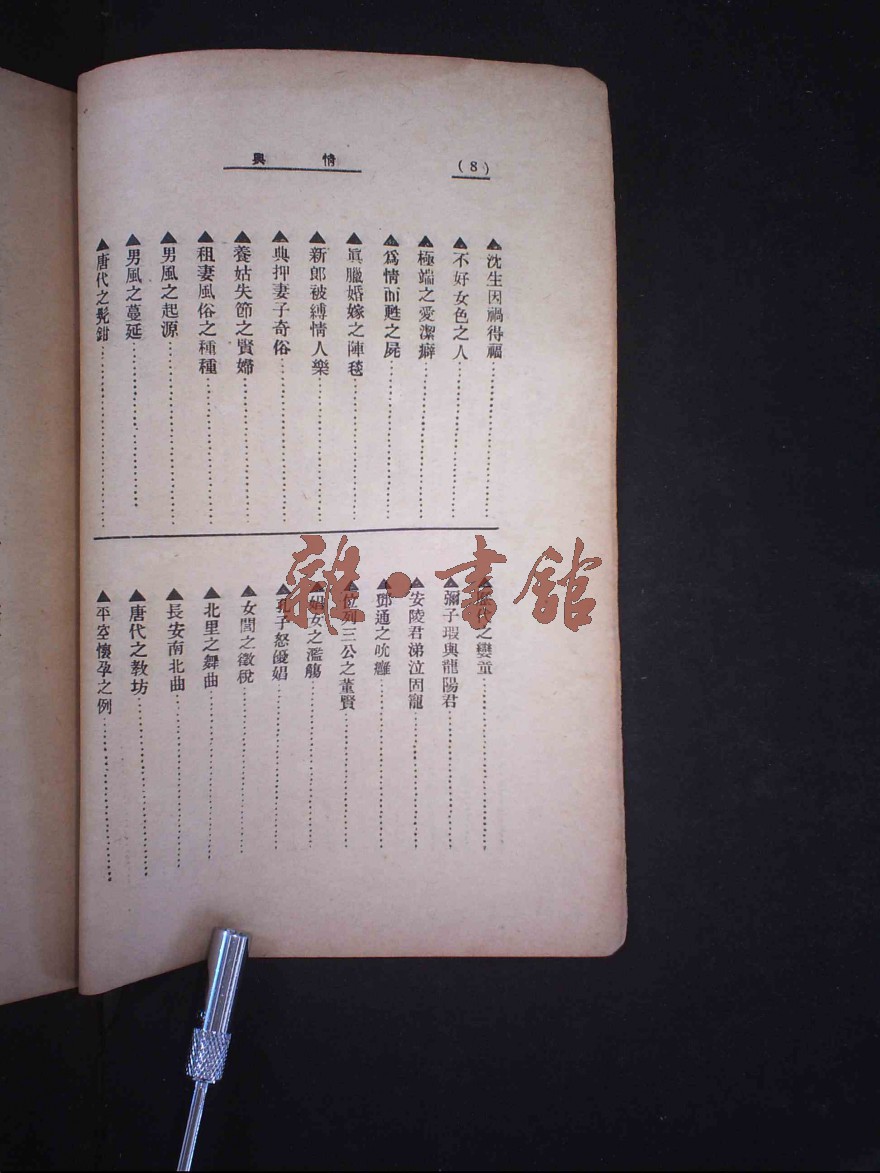 (8)
情興
▲沈生因禍得福
▲不好女色之人
▲極端之愛潔癖
▲爲情而甦之屍
▲眞臘婚嫁之陣毯
▲新郎被縛情人樂
▲典押妻子奇俗
▲養姑失節之賢婦
▲租妻風俗之種種
▲男風之起源
▲男風之蔓延
▲唐代之髡鉗
▲代之孌童
▲彌子瑕與龍陽君
▲安陵君涕泣固寵
▲鄧通之吮癰
▲位列三公之董賢
▲娼女之濫觴
▲孔子怒優娼
▲女閭之徵稅
▲北里之舞曲
▲長安南北曲
▲唐代之教坊
▲平空懷孕之例
雜·書館